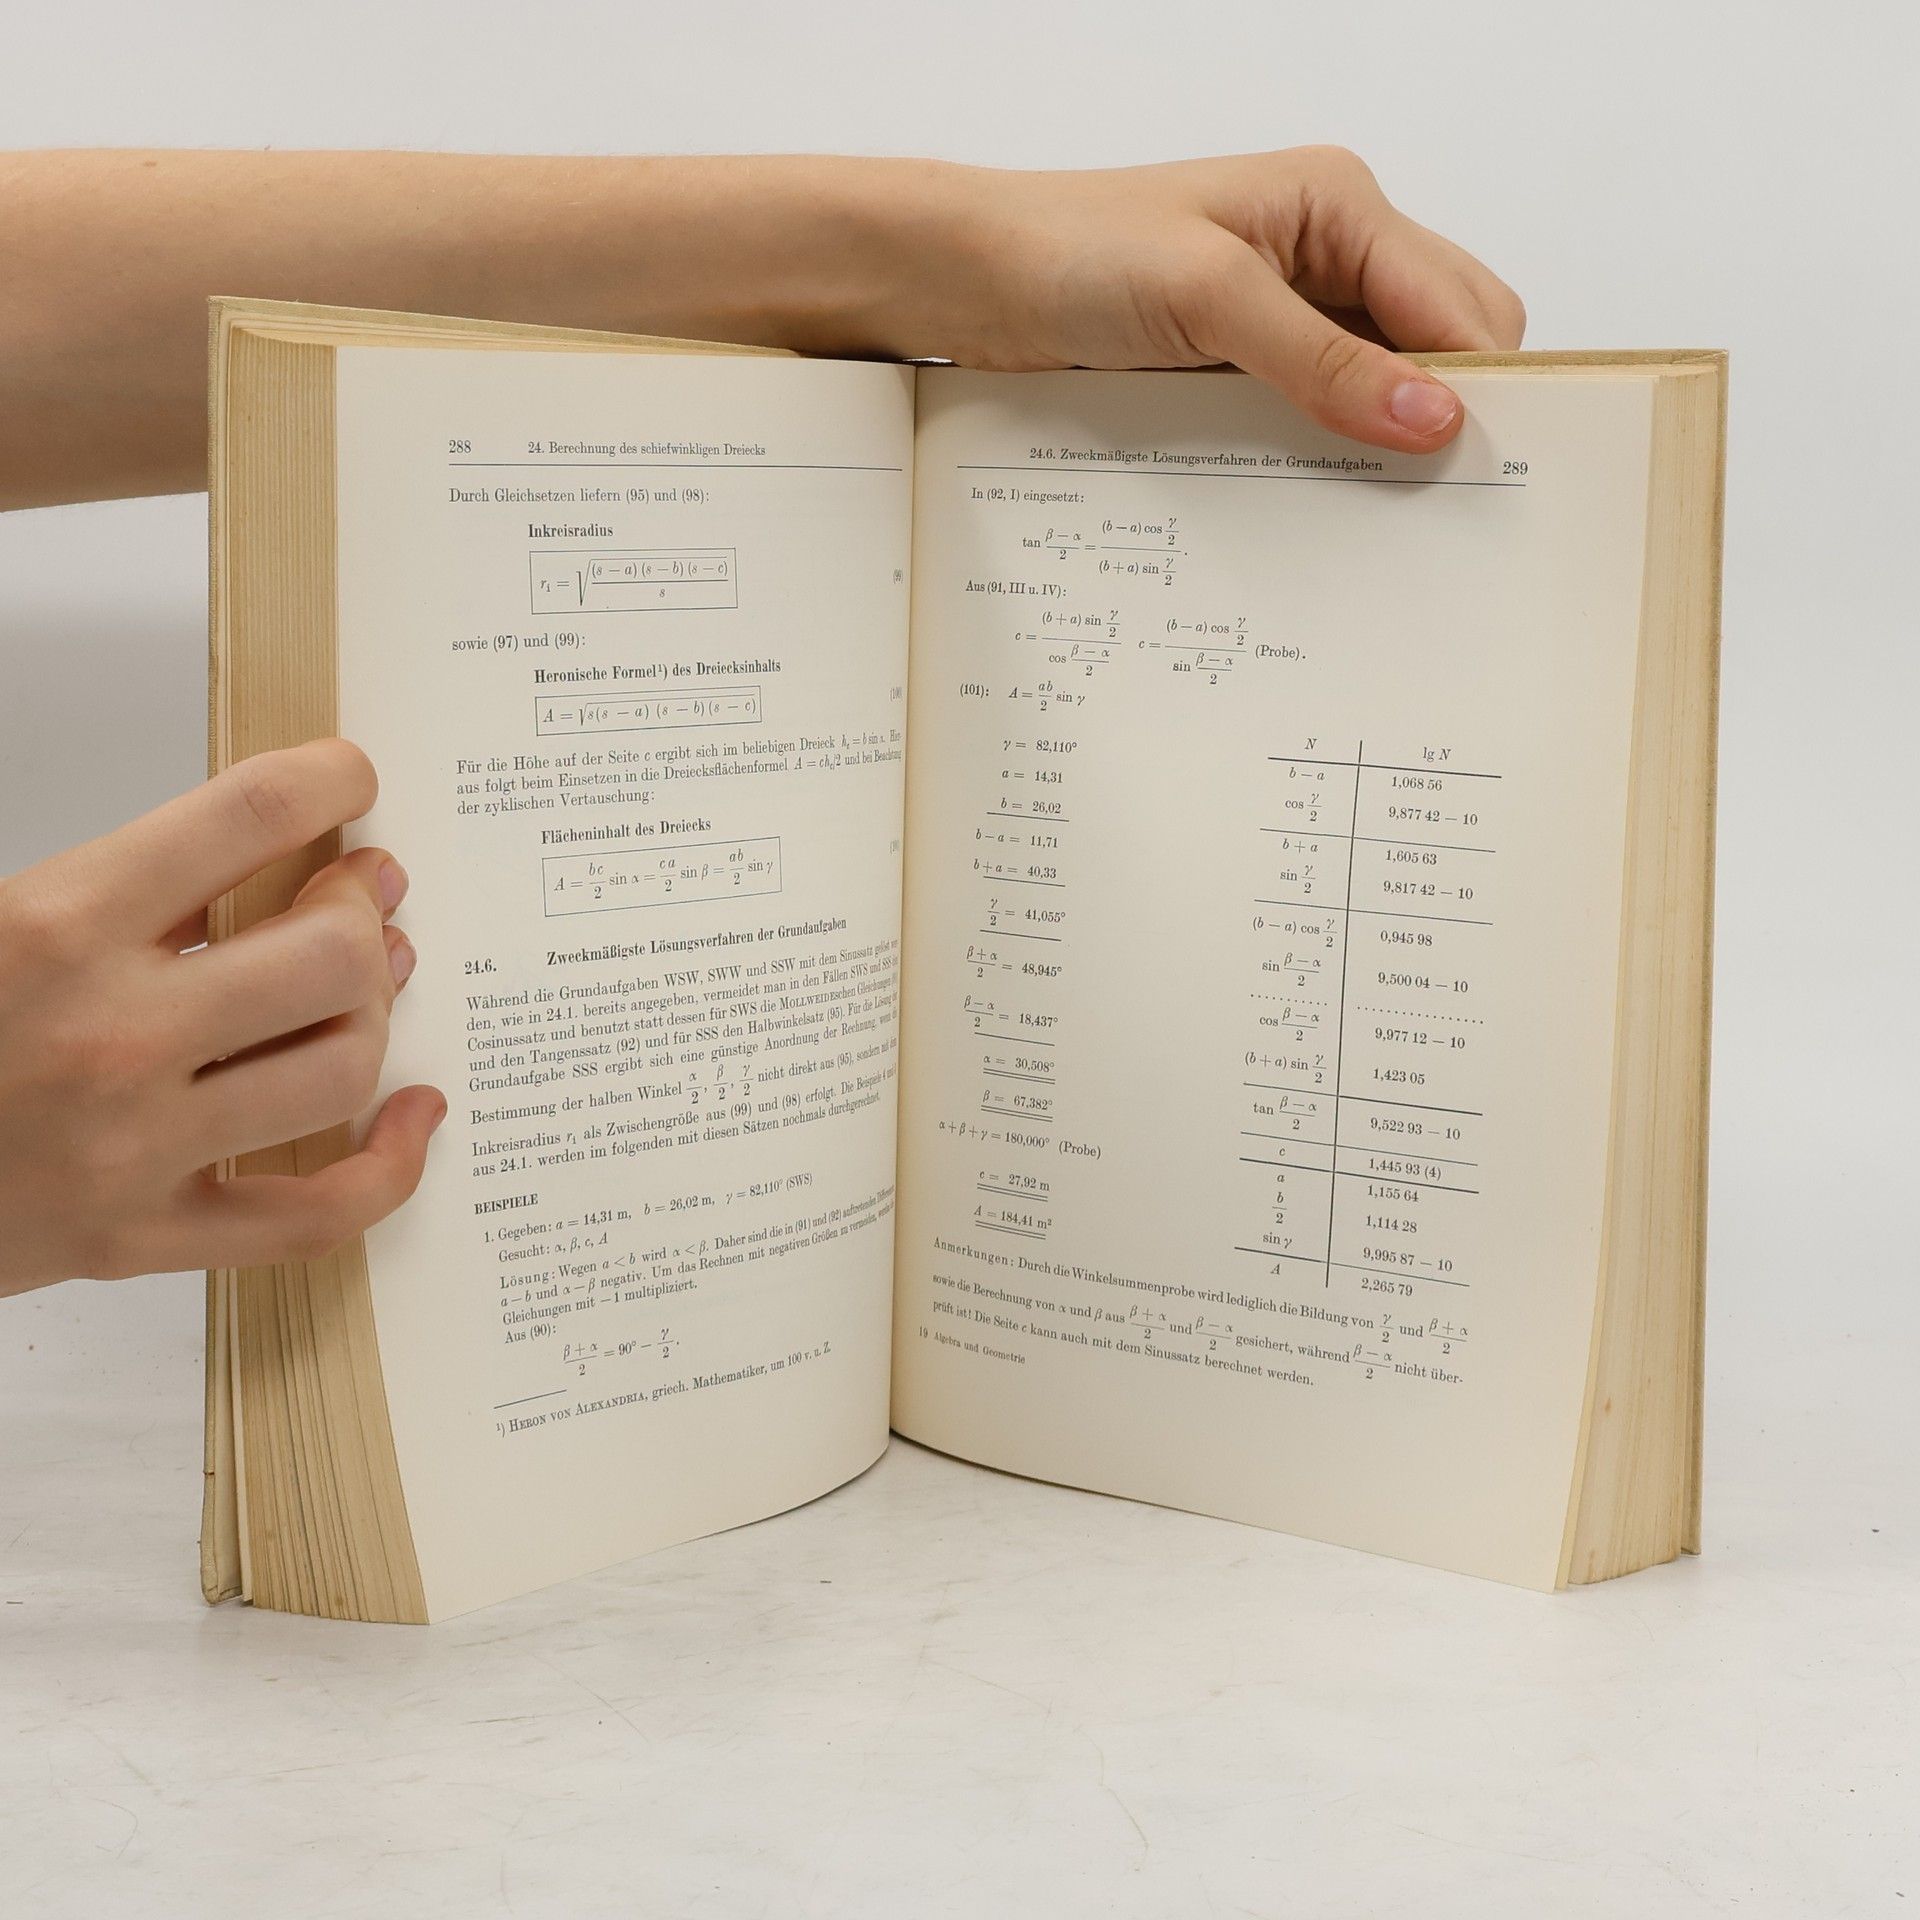 288 24. Berechnung des schiefwinkligen Dreiecks
Durch Gleichsetzen liefern (95) und (98):
Inkreisradius
r_i = √((s − a) (s − b) (s − c) / s) (99)
sowie (97) und (99):
Heronische Formel¹) des Dreiecksinhalts
A = √(s(s − a) (s − b) (s − c)) (100)
Für die Höhe auf der Seite c ergibt sich im beliebigen Dreieck h_c = b sin α. Hier-
aus folgt beim Einsetzen in die Dreiecksflächenformel A = ch_c/2 und bei Beachtung
der zyklischen Vertauschung:
Flächeninhalt des Dreiecks
A = bc/2 sin α = ca/2 sin β = ab/2 sin γ
24.6. Zweckmäßigste Lösungsverfahren der Grundaufgaben
Während die Grundaufgaben WSW, SWW und SSW mit dem Sinussatz gelöst wer-
den, wie in 24.1. bereits angegeben, vermeidet man in den Fällen SWS und SSS den
Cosinussatz und benutzt statt dessen für SWS die MOLLWEIDEschen Gleichungen
und den Tangenssatz (92) und für SSS den Halbwinkelsatz (95). Für die Lösung der
Grundaufgabe SSS ergibt sich eine günstige Anordnung der Rechnung, wenn die
Bestimmung der halben Winkel α/2, β/2, γ/2 nicht direkt aus (95), sondern mit dem
Inkreisradius r_i als Zwischengröße aus (99) und (98) erfolgt. Die Beispiele 4 und
aus 24.1. werden im folgenden mit diesen Sätzen nochmals durchgerechnet.
BEISPIELE
1. Gegeben: a = 14,31 m, b = 26,02 m, γ = 82,110° (SWS)
Gesucht: α, β, c, A
Lösung: Wegen a < b wird α < β. Daher sind die in (91) und (92) auftretenden Differenzen
a − b und α − β negativ. Um das Rechnen mit negativen Größen zu vermeiden, werden
Gleichungen mit − 1 multipliziert.
Aus (90):
(β + α)/2 = 90° − γ/2.
¹) HERON VON ALEXANDRIA, griech. Mathematiker, um 100 v. u. Z.
24.6. Zweckmäßigste Lösungsverfahren der Grundaufgaben 289
In (92, I) eingesetzt:
tan (β − α)/2 = ((b − a) cos γ/2) / ((b + a) sin γ/2).
Aus (91, III u. IV):
c = ((b + a) sin γ/2) / (cos (β − α)/2) c = ((b − a) cos γ/2) / (sin (β − α)/2) (Probe).
(101): A = ab/2 sin γ
γ = 82,110°
a = 14,31
b = 26,02
b − a = 11,71
b + a = 40,33
γ/2 = 41,055°
(β + α)/2 = 48,945°
(β − α)/2 = 18,437°
α = 30,508°
β = 67,382°
α + β + γ = 180,000° (Probe)
c = 27,92 m
A = 184,41 m²
N lg N
b − a 1,068 56
cos γ/2 9,877 42 — 10
b + a 1,605 63
sin γ/2 9,817 42 — 10
(b − a) cos γ/2 0,945 98
sin (β − α)/2 9,500 04 — 10
cos (β − α)/2 9,977 12 — 10
(b + a) sin γ/2 1,423 05
tan (β − α)/2 9,522 93 — 10
c 1,445 93 (4)
a 1,155 64
b/2 1,114 28
sin γ 9,995 87 — 10
A 2,265 79
Anmerkungen: Durch die Winkelsummenprobe wird lediglich die Bildung von γ/2 und (β + α)/2
sowie die Berechnung von α und β aus (β + α)/2 und (β − α)/2 gesichert, während (β − α)/2 nicht über-
prüft ist! Die Seite c kann auch mit dem Sinussatz berechnet werden.
19 Algebra und Geometrie